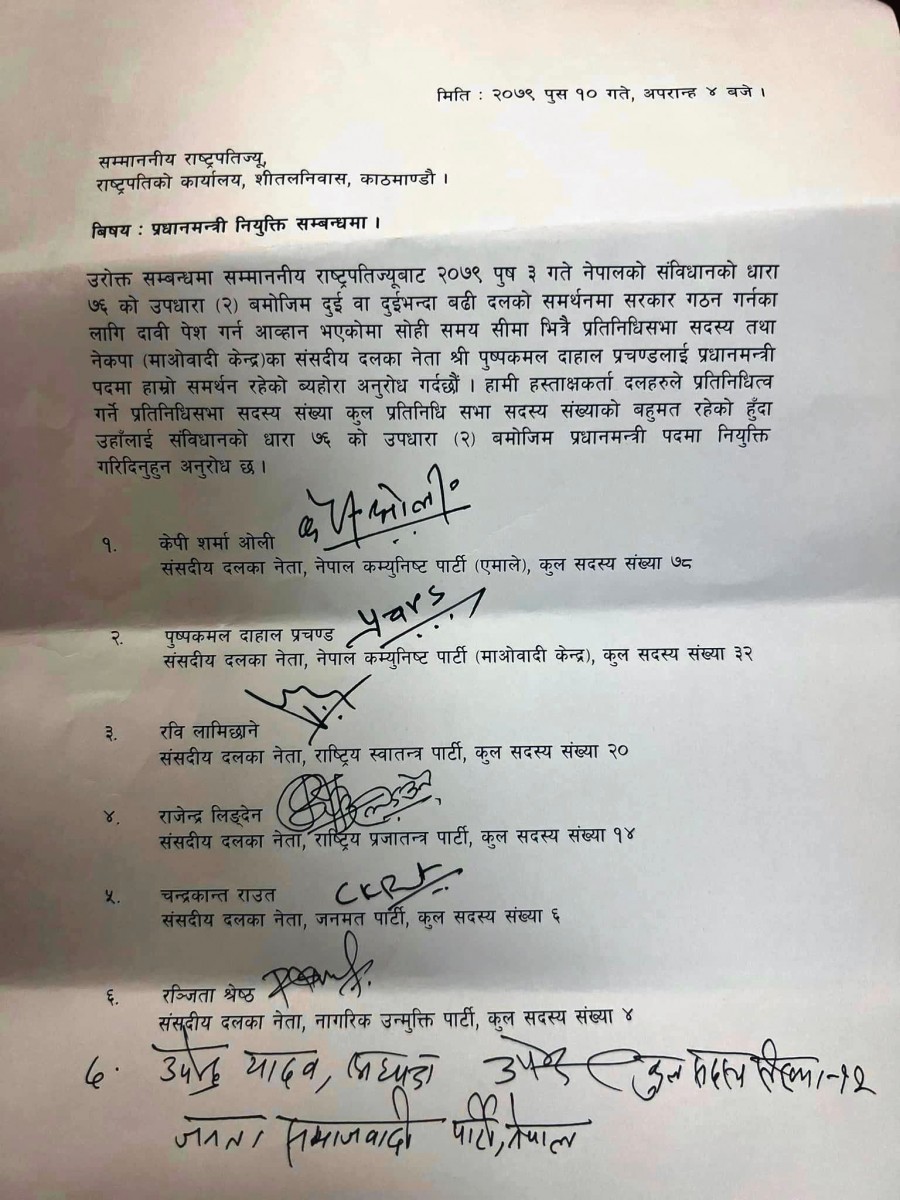 मिति : २०७९ पुस १० गते, अपरान्ह ४ बजे ।
सम्माननीय राष्ट्रपतिज्यू,
राष्ट्रपतिको कार्यालय, शीतलनिवास, काठमाण्डौ ।
बिषय : प्रधानमन्त्री नियुक्ति सम्बन्धमा ।
उरोक्त सम्बन्धमा सम्माननीय राष्ट्रपतिज्यूबाट २०७९ पुष ३ गते नेपालको संविधानको धारा
७६ को उपधारा (२) बमोजिम दुई वा दुईभन्दा बढी दलको समर्थनमा सरकार गठन गर्नका
लागि दावी पेश गर्न आव्हान भएकोमा सोही समय सीमा भित्रै प्रतिनिधिसभा सदस्य तथा
नेकपा (माओवादी केन्द्र)का संसदीय दलका नेता श्री पुष्पकमल दाहाल प्रचण्डलाई प्रधानमन्त्री
पदमा हाम्रो समर्थन रहेको ब्यहोरा अनुरोध गर्दछौं । हामी हस्ताक्षकर्ता दलहरुले प्रतिनिधित्व
गर्ने प्रतिनिधिसभा सदस्य संख्या कुल प्रतिनिधि सभा सदस्य संख्याको बहुमत रहेको हुँदा
उहाँलाई संविधानको धारा ७६ को उपधारा (२) बमोजिम प्रधानमन्त्री पदमा नियुक्ति
गरिदिनुहुन अनुरोध छ ।
के पी ओली
१. केपी शर्मा ओली
संसदीय दलका नेता, नेपाल कम्युनिष्ट पार्टी (एमाले), कुल सदस्य संख्या ७८
२. पुष्पकमल दाहाल प्रचण्ड
संसदीय दलका नेता, नेपाल कम्युनिष्ट पार्टी (माओवादी केन्द्र), कुल सदस्य संख्या ३२
३. रवि लामिछाने
संसदीय दलका नेता, राष्ट्रिय स्वातन्त्र पार्टी, कुल सदस्य संख्या २०
४. राजेन्द्र लिङ्देन
संसदीय दलका नेता, राष्ट्रिय प्रजातन्त्र पार्टी, कुल सदस्य संख्या १४
५. चन्द्रकान्त राउत
संसदीय दलका नेता, जनमत पार्टी, कुल सदस्य संख्या ६
६. रञ्जिता श्रेष्ठ
संसदीय दलका नेता, नागरिक उन्मुक्ति पार्टी, कुल सदस्य संख्या ४
७. उपेन्द्र यादव, कुल सदस्य संख्या-१२
जनता समाजवादी पार्टी, नेपाल